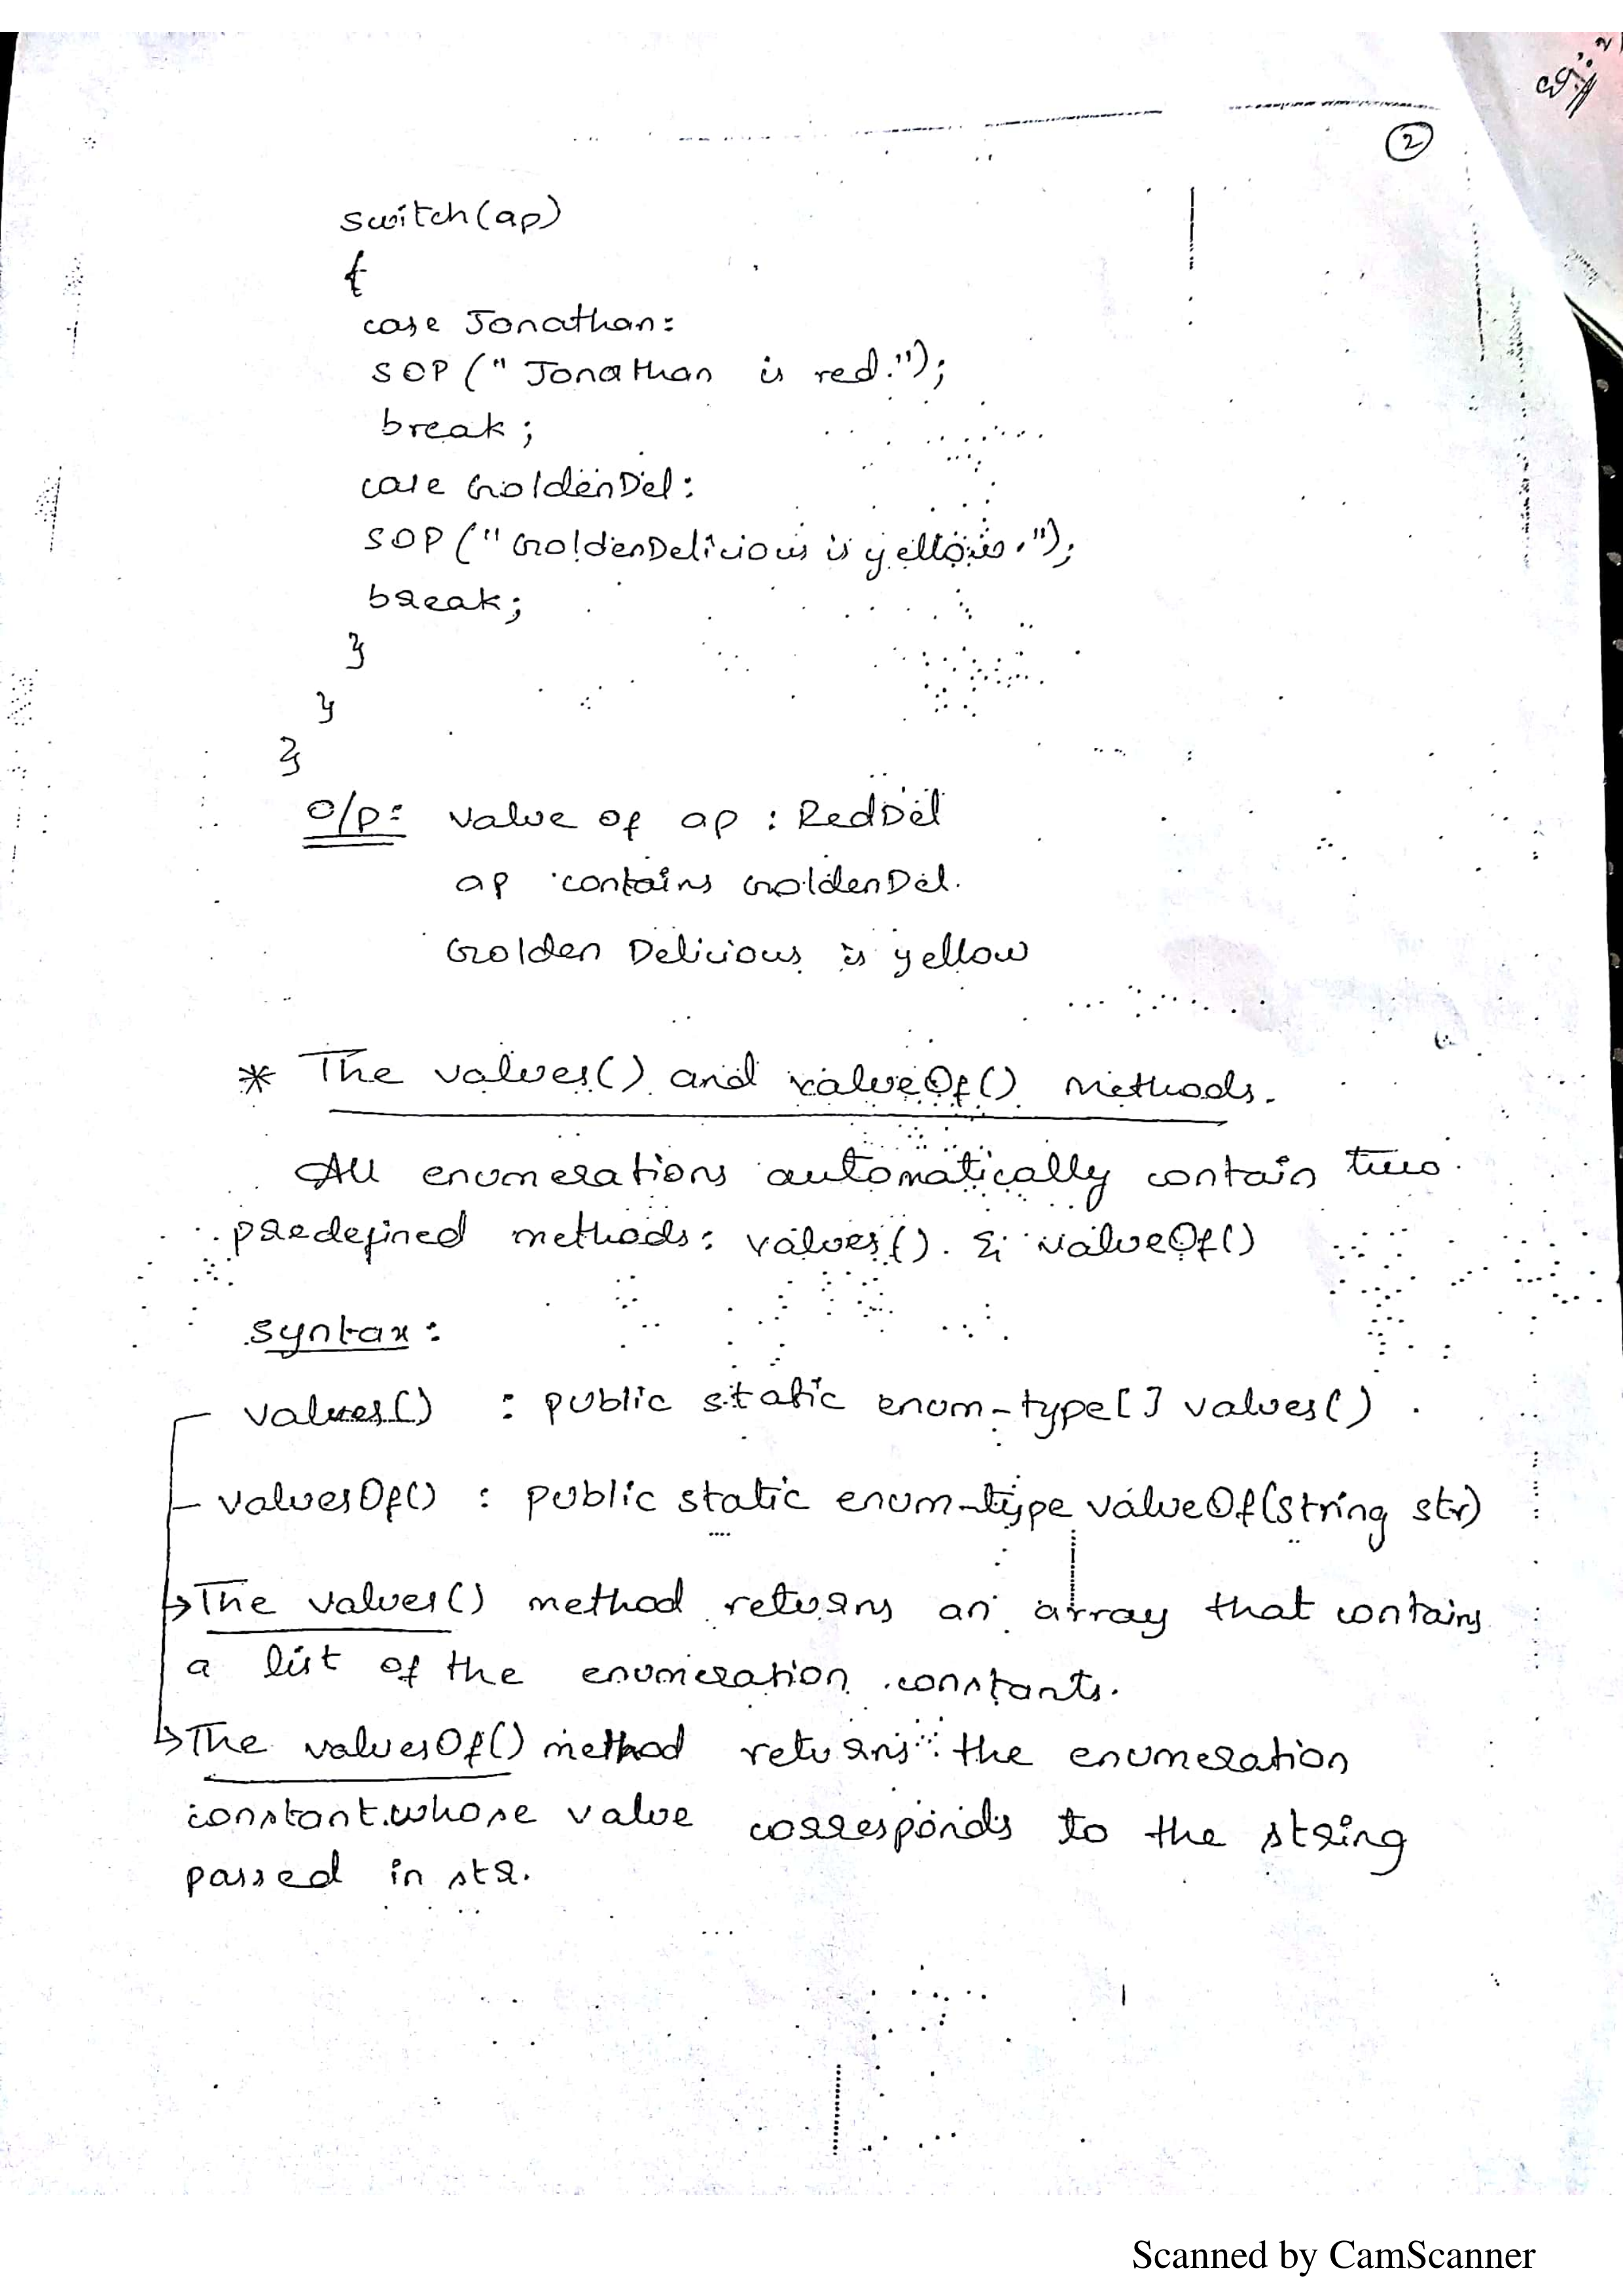 2
switch(ap)
{
case Jonathan:
SOP (" Jonathan is red.");
break;
case GoldenDel:
SOP (" GoldenDelicious is yellow.");
break;
}
}
}
O/P: Value of ap : RedDel
ap contains GoldenDel.
Golden Delicious is yellow
* The values() and valueOf() Methods.
All enumerations automatically contain two
predefined methods: values() & valueOf()
syntax:
values() : public static enum-type[] values()
valuesOf() : public static enum-type valueOf(string str)
→The values() method returns an array that contains
a list of the enumeration constants.
→The valuesOf() method returns the enumeration
constant whose value corresponds to the string
passed in str.
Scanned by CamScanner